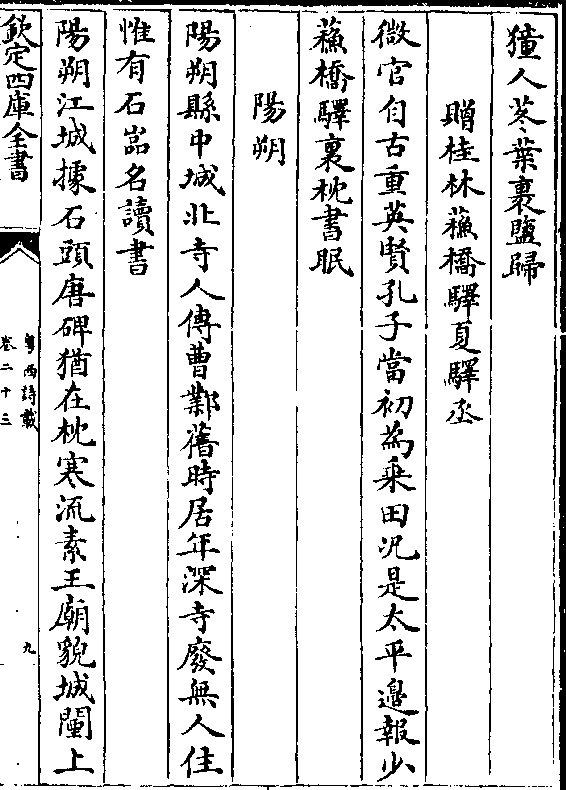 獞人苳葉裹鹽歸
贈桂林蘓橋驛夏驛丞
微官自古重英賢孔子當初為乗田况是太平邉報少
蘓橋驛裏枕書眠
陽朔
陽朔縣中城北寺人傳曹鄴舊時居年深寺廢無人住
惟有石嵓名讀書
陽朔江城據石頭唐碑猶在枕寒流素王廟貌城闉上
欽定四庫全書
粤西詩載
卷二十三
九